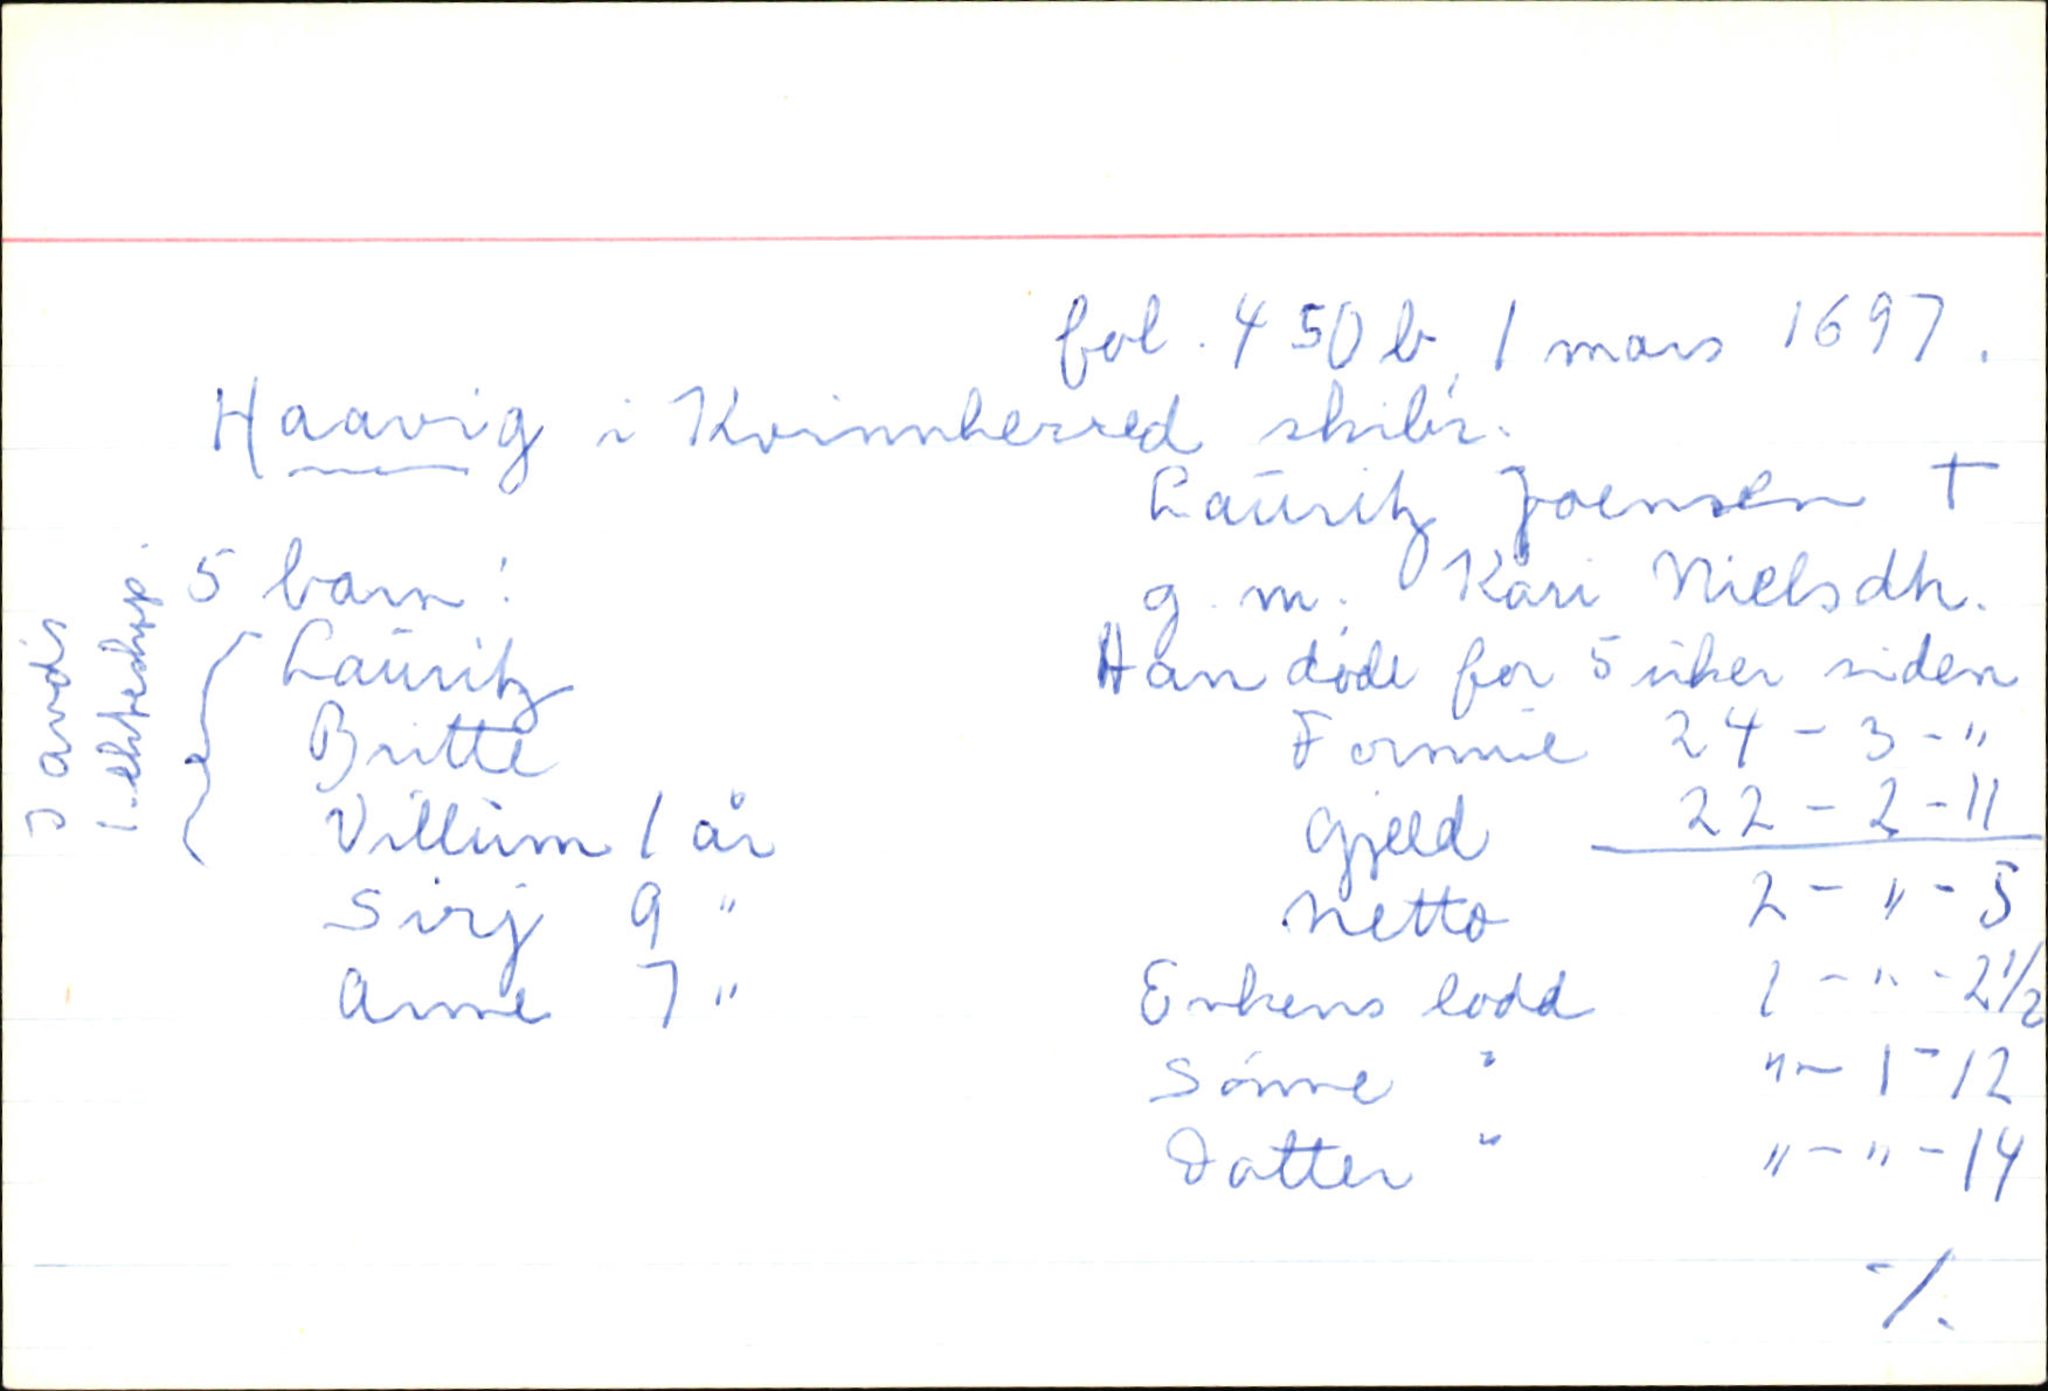 fol. 450 b, 1 mars 1697.
Haavig i Kvinnherred skibr.
Lauritz Joensen †
g. m. Kari Nielsdtr.
Han døde for 5 uker siden
5 barn:
I avdøs
1. ekteskap.
Lauritz
Britte
Villum 1 år
Sirj 9 "
Anne 7 "
Formue 24 - 3 - "
Gjeld 22 - 2 - 11
Netto 2 - " - 5
Enkens lodd 1 - " - 2 1/2
Sønne " " - 1 - 12
Datter " " - " - 14
./.